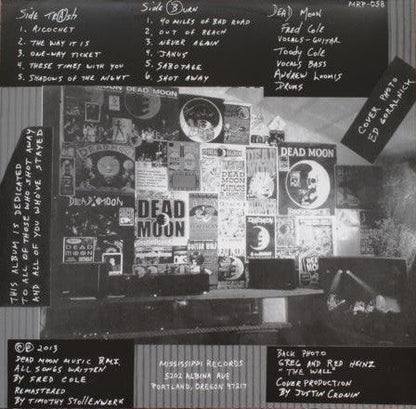 Side Tr(A)sh
1. RICOCHET
2. THE WAY IT IS
3. ONE-WAY TICKET
4. THESE TIMES WITH YOU
5. SHADOWS OF THE NIGHT
Side (B)urn
1. 40 MILES OF BAD ROAD
2. OUT OF REACH
3. NEVER AGAIN
4. JANUS
5. SABOTAGE
6. SHOT AWAY
DEAD MOON
FRED COLE
VOCALS-GUITAR
TOODY COLE
VOCALS BASS
ANDREW LOOMIS
DRUMS
MRP-058
COVER PHOTO
ED GORALNICK
THIS ALBUM IS DEDICATED
TO ALL OF THOSE WHO SHOT AWAY
AND ALL OF YOU WHO'VE STAYED
DEAD MOON
DEAD MOON
DEAD MOON
DEAD
MOON
DEAD MOON
GUITAR WOLF
DEAD
MOON
© ℗ 2013
DEAD MOON MUSIC B.M.I.
ALL SONGS WRITTEN
BY FRED COLE
REMASTERED
BY TIMOTHY STOLLENWERK
MISSISSIPPI RECORDS
5202 ALBINA AVE
PORTLAND, OREGON 97217
BACK PHOTO
GREG AND RED HEINZ
"THE WALL"
COVER PRODUCTION
BY JUSTIN CRONIN